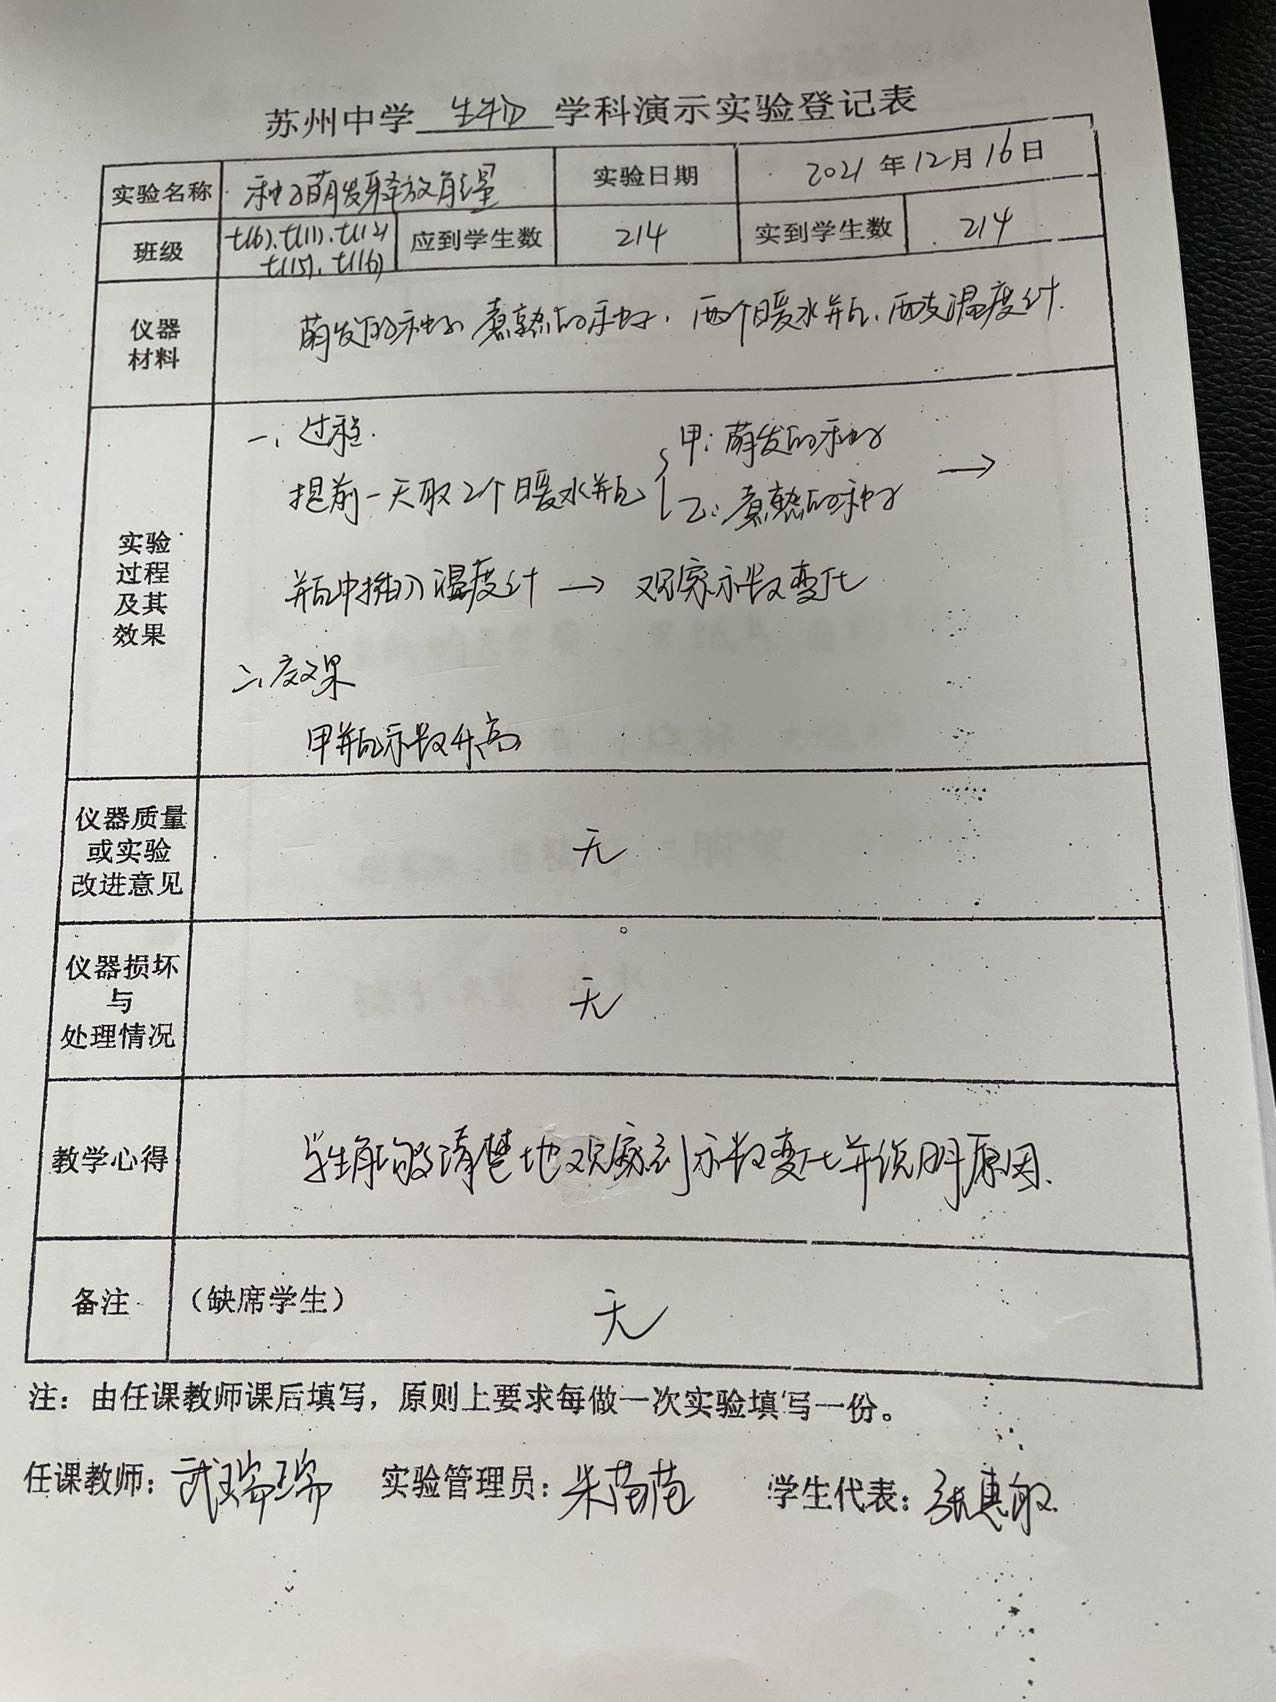 苏州中学 生物 学科演示实验登记表
实验名称 种子萌发释放能量 实验日期 2021年12月16日
班级 七(6)、七(11)、七(12) 应到学生数 214 实到学生数 214
七(15)、七(16)
仪器
材料
萌发的种子、煮熟的种子、两个暖水瓶、两支温度计.
实验
过程
及其
效果
一、过程.
提前一天取2个暖水瓶 { 甲:萌发的种子
乙:煮熟的种子 →
瓶中插入温度计 → 观察示数变化
二、效果
甲瓶示数升高
仪器质量
或实验
改进意见
无
仪器损坏
与
处理情况
无
教学心得 学生能够清楚地观察到示数变化并说明原因.
备注 (缺席学生) 无
注：由任课教师课后填写，原则上要求每做一次实验填写一份。
任课教师：武瑞瑞 实验管理员：朱苗苗 学生代表：张惠敏